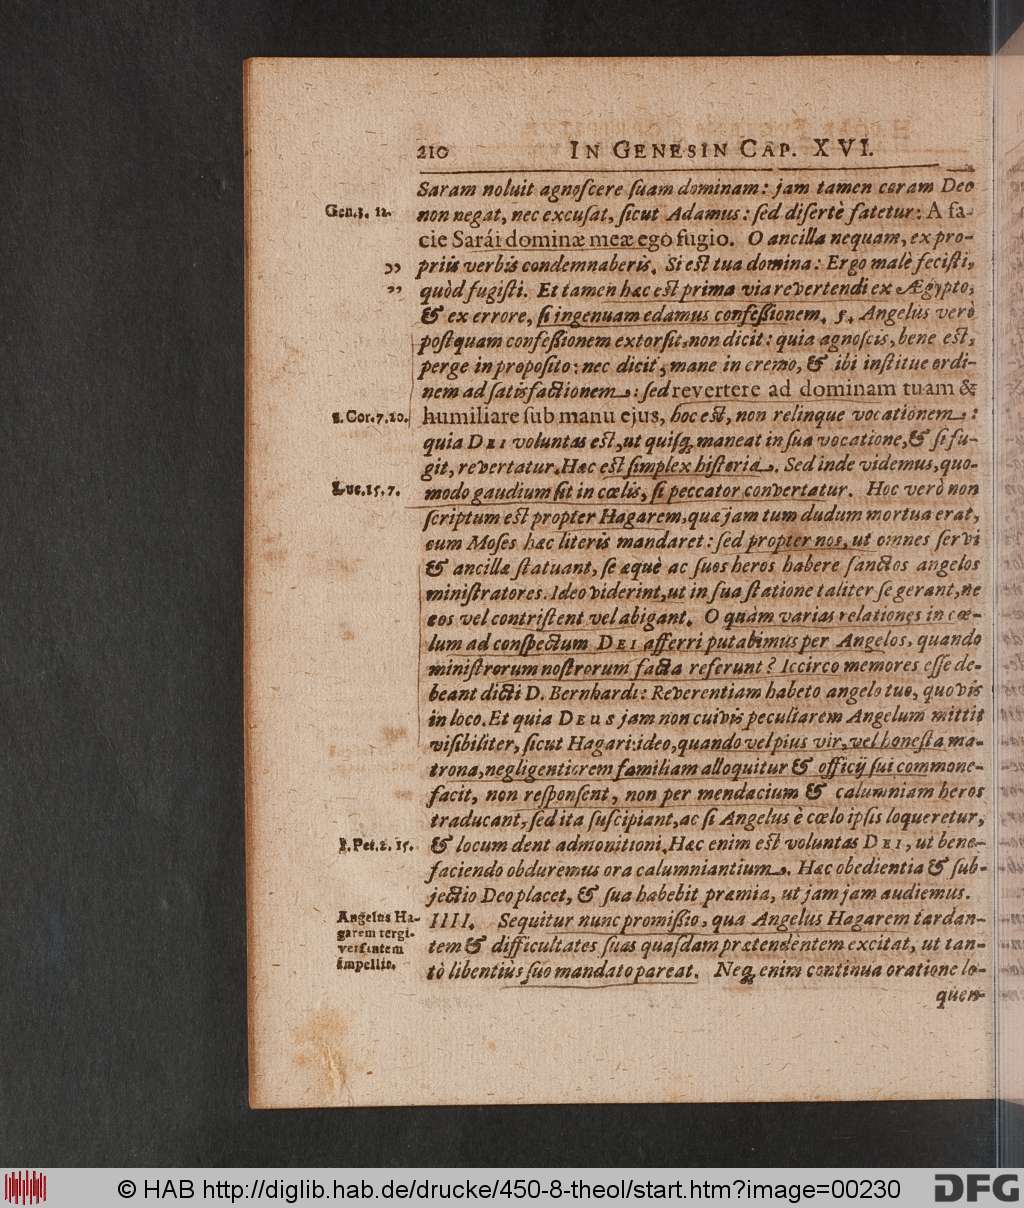 210 IN GENESIN CAP. XVI.
Saram noluit agnoſcere ſuam dominam: jam tamen coram Deo
Gen.3. 12. non negat, nec excuſat, ſicut Adamus: ſed diſertè fatetur: A fa-
cie Sarái dominæ meæ ego fugio. O ancilla nequam, ex pro-
„ priis verbis condemnaberis. Si eſt tua domina: Ergo malè feciſti,
„ quòd fugiſti. Et tamen hæc eſt prima via revertendi ex Ægypto,
& ex errore, ſi ingenuam edamus confeſſionem. 5. Angelus verò
poſtquam confeſſionem extorſit, non dicit: quia agnoſcis, bene eſt,
perge in propoſito: nec dicit, mane in eremo, & ibi inſtitue ordi-
nem ad ſatisfactionem: ſed revertere ad dominam tuam &
1. Cor.7.20. humiliare ſub manu ejus, hoc eſt, non relinque vocationem:
quia DEI voluntas eſt, ut quiſq; maneat in ſua vocatione, & ſi fu-
git, revertatur. Hæc eſt ſimplex hiſtoria. Sed inde videmus, quo-
Luc.15.7. modo gaudium ſit in cœlis, ſi peccator convertatur. Hoc verò non
ſcriptum eſt propter Hagarem, quæ jam tum dudum mortua erat,
cum Moſes hæc literis mandaret: ſed propter nos, ut omnes ſervi
& ancillæ ſtatuant, ſe æquè ac ſuos heros habere ſanctos angelos
miniſtratores. Ideo viderint, ut in ſua ſtatione taliter ſe gerant, ne
eos vel contriſtent vel abigant. O quàm varias relationes in cœ-
lum ad conſpectum DEI afferri putabimus per Angelos, quando
miniſtrorum noſtrorum facta referunt? Iccirco memores eſſe de-
beant dicti D. Bernhardi: Reverentiam habeto angelo tuo, quovis
in loco. Et quia DEUS jam non cuivis peculiarem Angelum mittit
viſibiliter, ſicut Hagari: ideo, quando vel pius vir, vel honeſta ma-
trona, negligentiorem familiam alloquitur & officij ſui commone-
facit, non reſponſent, non per mendacium & calumniam heros
traducant, ſed ita ſuſcipiant, ac ſi Angelus è cœlo ipſis loqueretur,
1. Pet.2. 15. & locum dent admonitioni. Hæc enim eſt voluntas DEI, ut bene-
faciendo obduremus ora calumniantium. Hæc obedientia & ſub-
jectio Deo placet, & ſua habebit præmia, ut jam jam audiemus.
Angelus Ha-
garem tergi-
verſantem
impellit.
IIII. Sequitur nunc promiſſio, qua Angelus Hagarem tardan-
tem & difficultates ſuas quaſdam prætendentem excitat, ut tan-
tò libentiùs ſuo mandato pareat. Neq; enim continua oratione lo-
quen-
© HAB http://diglib.hab.de/drucke/450-8-theol/start.htm?image=00230 DFG